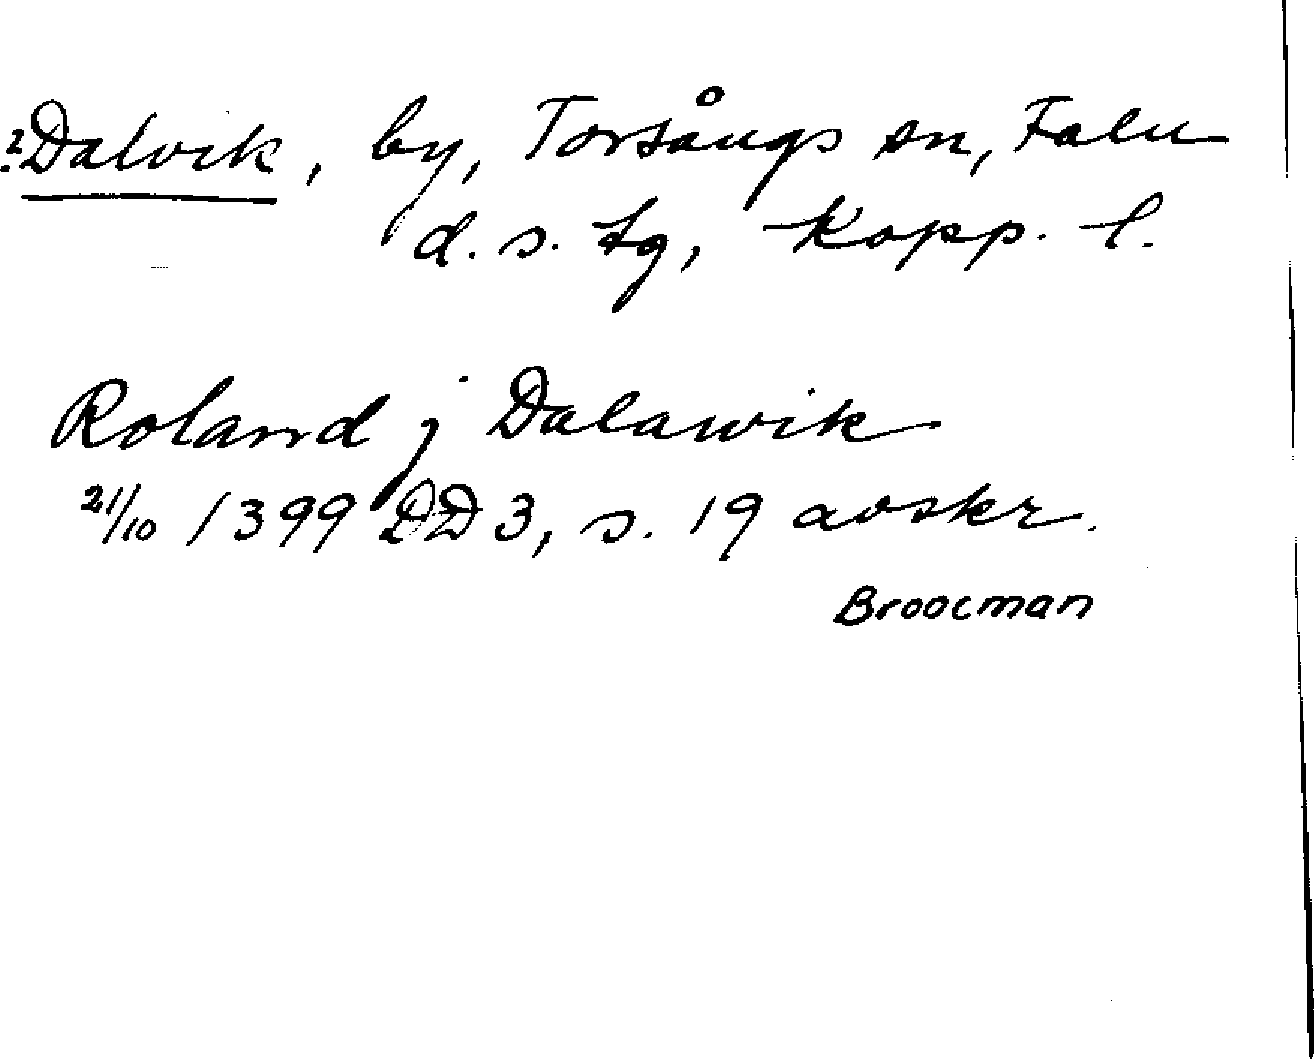 ?Dalvik, by, Torsångs sn, Falu
d. s. tg, Kopp. l.
Roland j Dalawik
21/10 1399 DD 3, s. 19 avskr.
Broocman